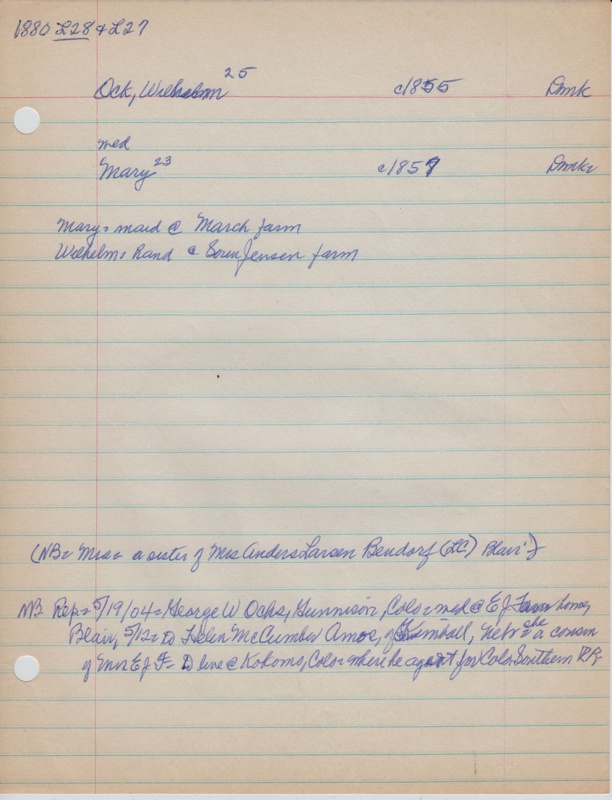 1880 L28 & L27
Ock, Wilhelm 25 c1855 Dmk
med
Mary 23 c1857 Dmk
Mary = maid @ March farm
Wilhelm = hand @ Soren Jensen farm
(NB = Mrs = a sister of Mrs Anders Larsen Bendorf (LC) Blair)
NB Rep = 5/19/04 = George W Ochs, Gunnison, Colo = med @ E J home,
Blair, 5/12 = to Helen McCumber Amos, of Kimball, Nebr = she a cousin
of Mrs E J F = to live @ Kokomo, Colo = where he agent for Colo Southern RR